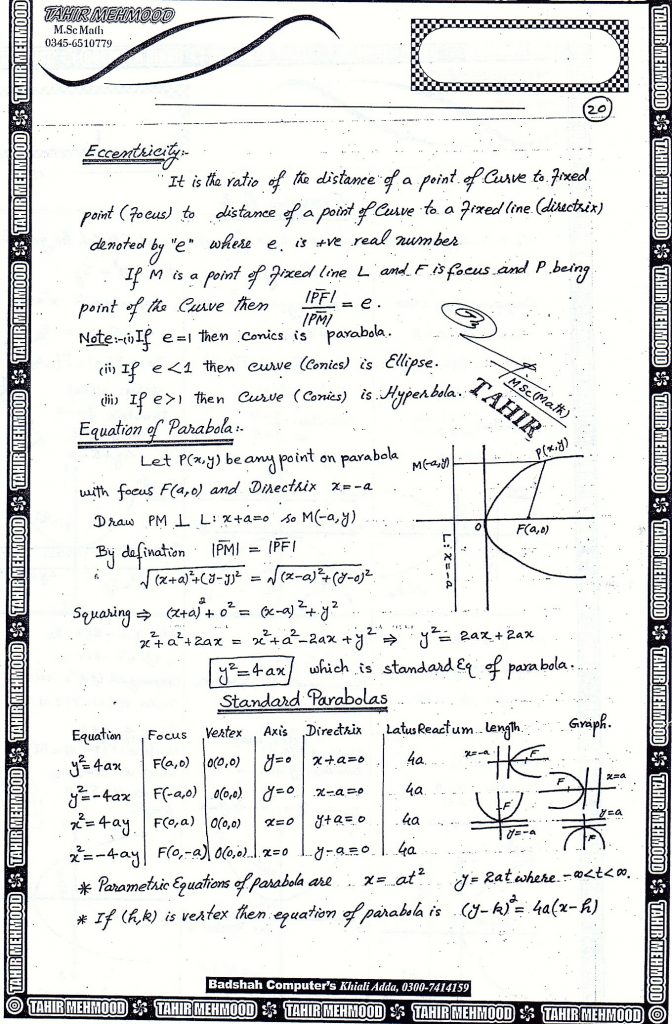 TAHIR MEHMOOD
M.Sc Math
0345-6510779
20
Eccentricity:-
It is the ratio of the distance of a point of Curve to Fixed
point (Focus) to distance of a point of Curve to a Fixed line (directrix)
denoted by "e" where e is +ve real number
If M is a point of Fixed line L and F is focus and P being
point of the Curve then |PF|/|PM| = e.
Note:-(i) If e=1 then conics is parabola.
(ii) If e<1 then curve (Conics) is Ellipse.
(iii) If e>1 then Curve (Conics) is Hyperbola.
TAHIR
MSc(Math)
Equation of Parabola:-
Let P(x,y) be any point on parabola
with focus F(a,0) and Directrix x=-a
Draw PM ⊥ L: x+a=0 so M(-a,y)
By defination |PM| = |PF|
√(x+a)²+(y-y)² = √(x-a)²+(y-0)²
Squaring ⇒ (x+a)²+0² = (x-a)²+y²
x²+a²+2ax = x²+a²-2ax+y² ⇒ y² = 2ax+2ax
y²=4ax which is standard Eq of parabola.
M(-a,y)
P(x,y)
0
F(a,0)
L: x=-a
Standard Parabolas
Equation Focus Vertex Axis Directrix LatusReactum length Graph.
y²=4ax F(a,0) 0(0,0) y=0 x+a=0 4a x=-a F
y²=-4ax F(-a,0) 0(0,0) y=0 x-a=0 4a F x=a
x²=4ay F(0,a) 0(0,0) x=0 y+a=0 4a F y=-a
x²=-4ay F(0,-a) 0(0,0) x=0 y-a=0 4a y=a F
* Parametric Equations of parabola are x= at² y=2at where -∞<t<∞.
* If (h,k) is vertex then equation of parabola is (y-k)²= 4a(x-h)
Badshah Computer's Khiali Adda, 0300-7414159
TAHIR MEHMOOD TAHIR MEHMOOD TAHIR MEHMOOD TAHIR MEHMOOD TAHIR MEHMOOD